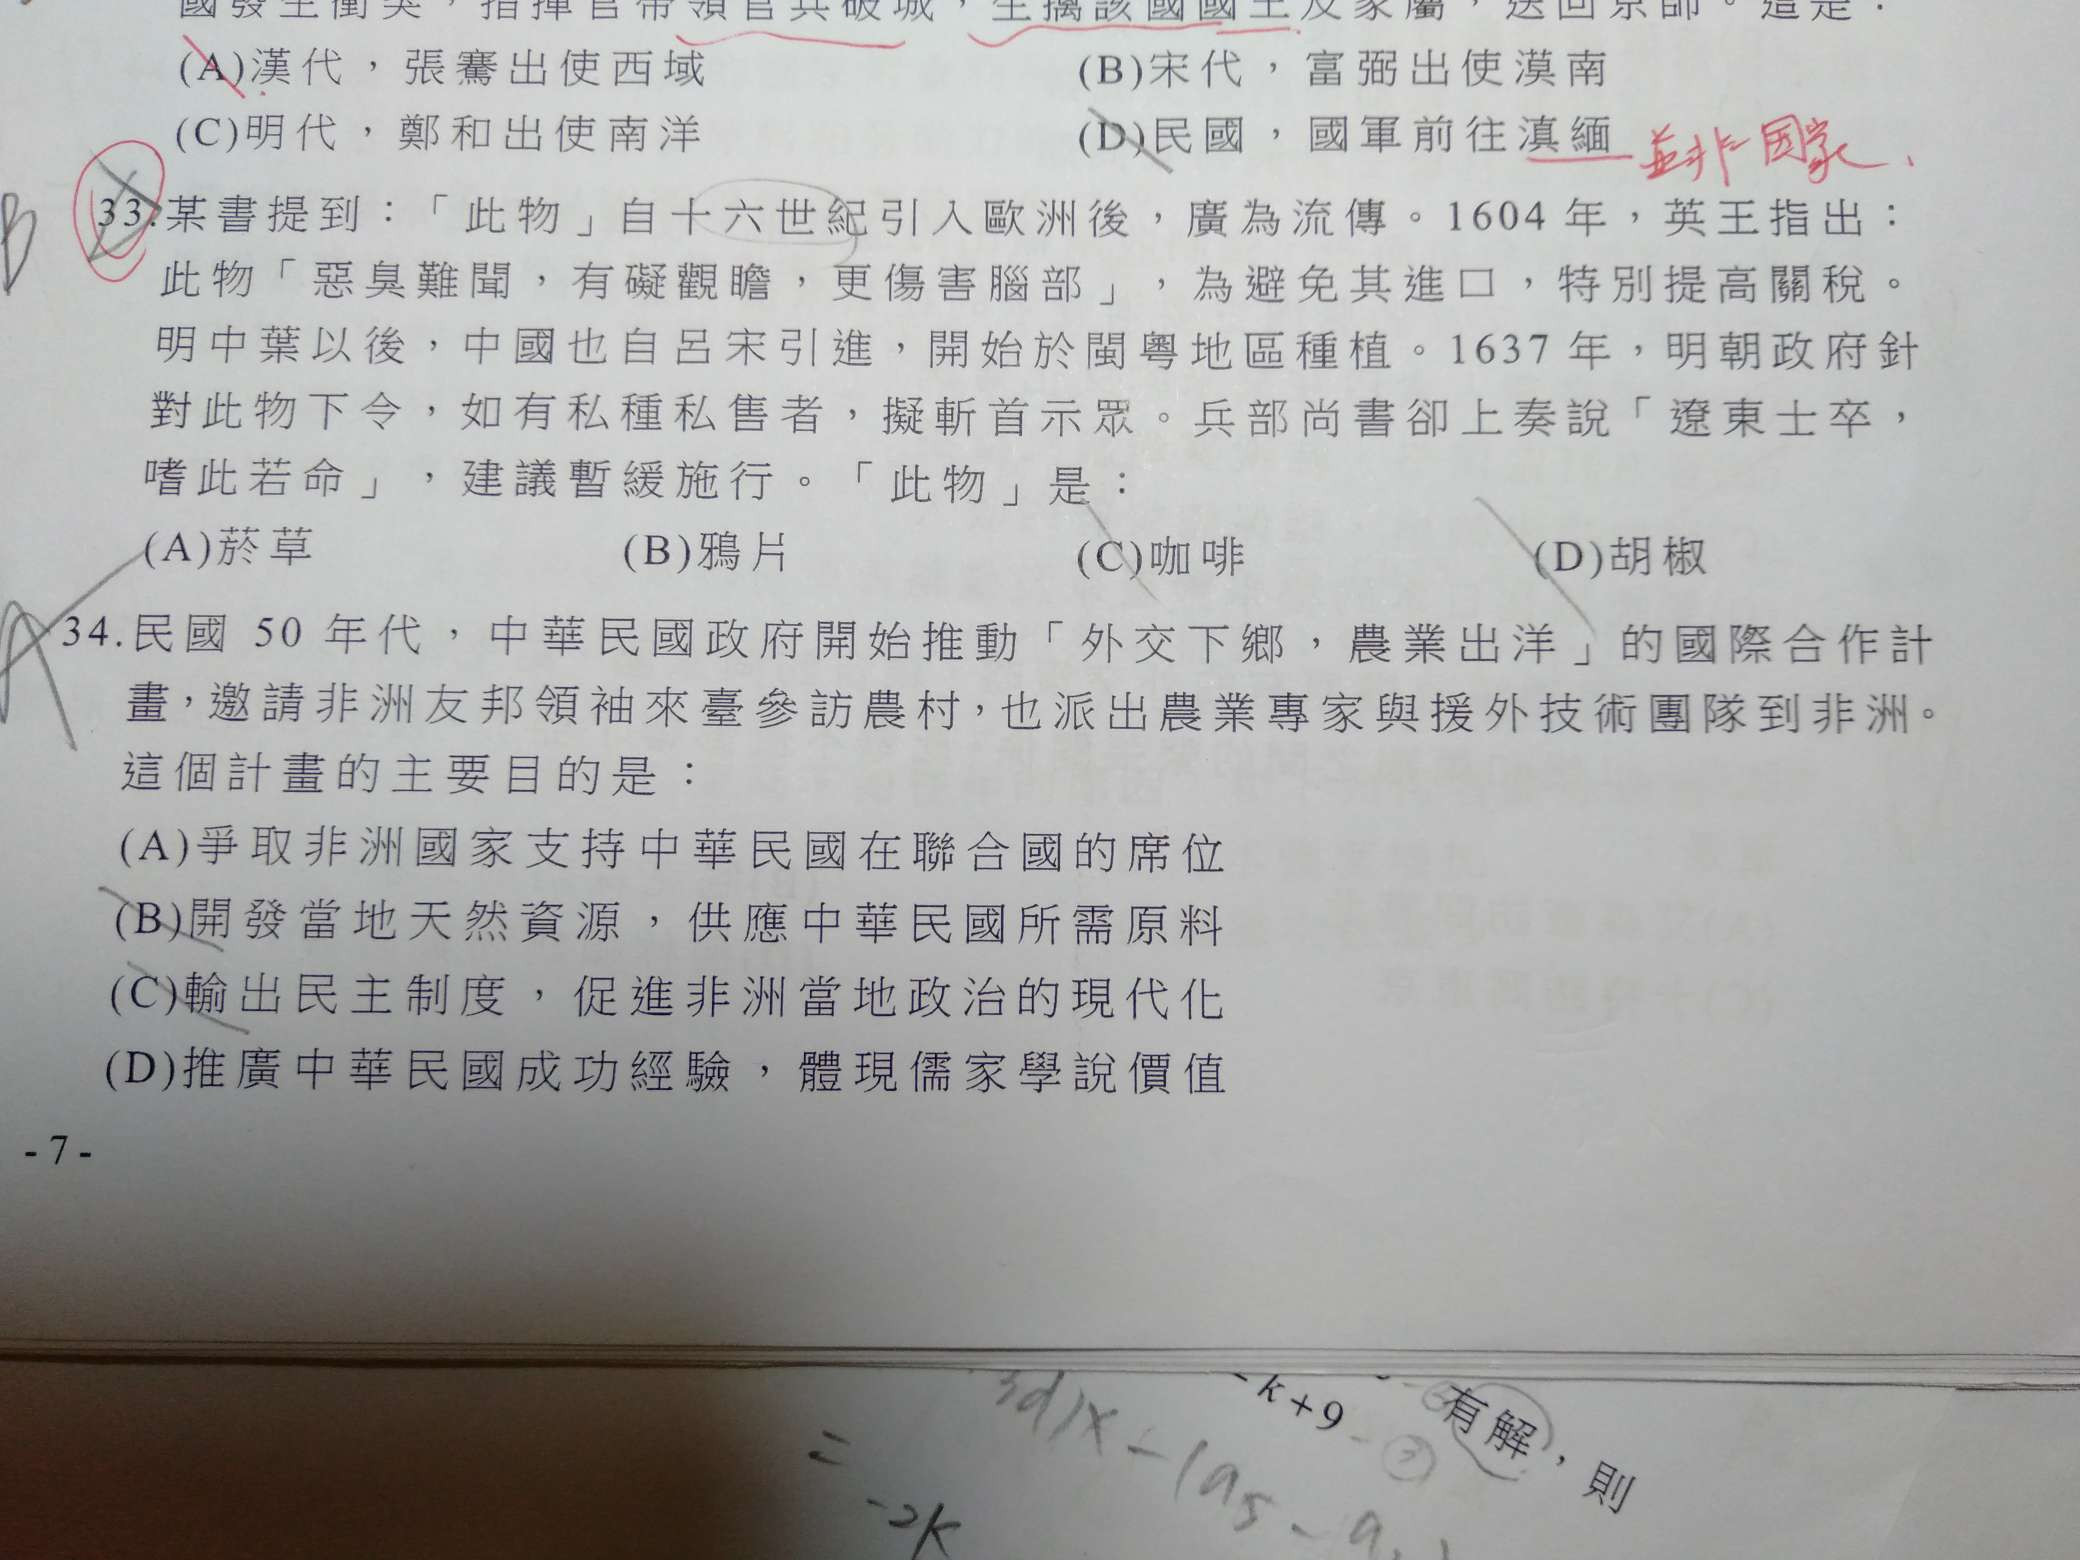 國發生衝突，指揮官帶領官兵破城，生擒該國國王及家屬，送回京師。這是：
(A)漢代，張騫出使西域 (B)宋代，富弼出使漠南
(C)明代，鄭和出使南洋 (D)民國，國軍前往滇緬 並非国家、
B 33.某書提到：「此物」自十六世紀引入歐洲後，廣為流傳。1604 年，英王指出：
此物「惡臭難聞，有礙觀瞻，更傷害腦部」，為避免其進口，特別提高關稅。
明中葉以後，中國也自呂宋引進，開始於閩粵地區種植。1637 年，明朝政府針
對此物下令，如有私種私售者，擬斬首示眾。兵部尚書卻上奏說「遼東士卒，
嗜此若命」，建議暫緩施行。「此物」是：
(A)菸草 (B)鴉片 (C)咖啡 (D)胡椒
A 34.民國 50 年代，中華民國政府開始推動「外交下鄉，農業出洋」的國際合作計
畫，邀請非洲友邦領袖來臺參訪農村，也派出農業專家與援外技術團隊到非洲。
這個計畫的主要目的是：
(A)爭取非洲國家支持中華民國在聯合國的席位
(B)開發當地天然資源，供應中華民國所需原料
(C)輸出民主制度，促進非洲當地政治的現代化
(D)推廣中華民國成功經驗，體現儒家學說價值
- 7 -
-k+9 有解，則
= -2k